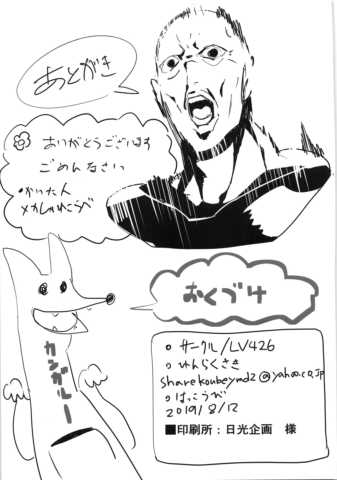 あとがき
ありがとうございます
ごめんなさい
・かいた人
メカしゃれこうべ
おくづけ
カンガルー
○サークル/LV426
○れんらくさき
sharekoubeymd2@yahoo.co.jp
○はっこうび
2019/8/12
■印刷所:日光企画 様